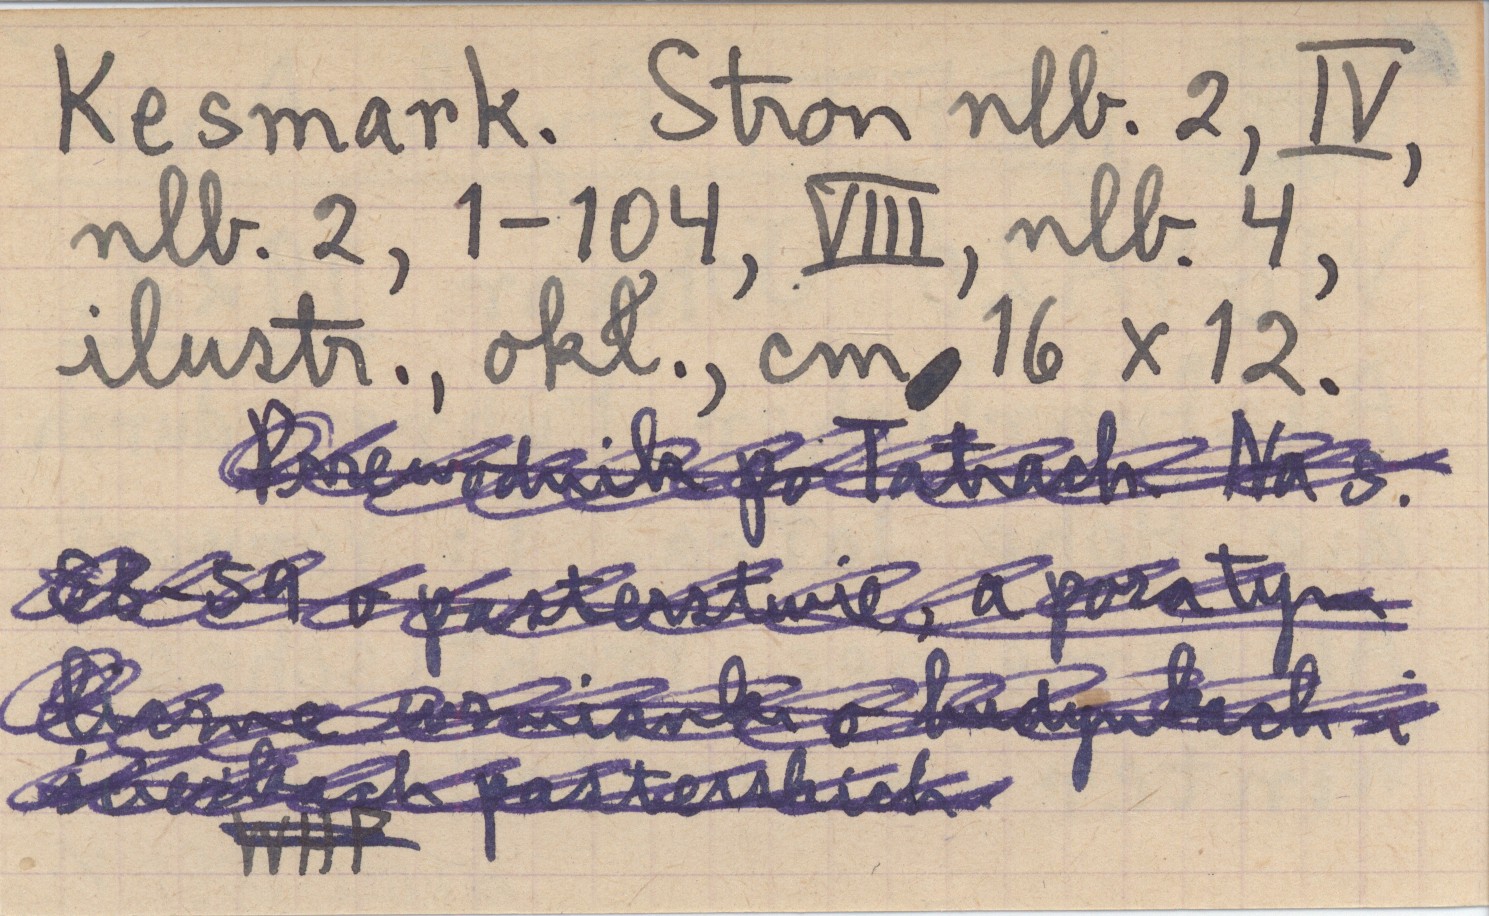 Kesmark. Stron nlb. 2, IV,
nlb. 2, 1-104, VIII, nlb. 4,
ilustr., okł., cm 16 x 12.
Przewodnik po Tatrach. Na s.
-59 o pasterstwie, a poza tym
liczne wzmianki o budynkach i
ścieżkach pasterskich.
WHP